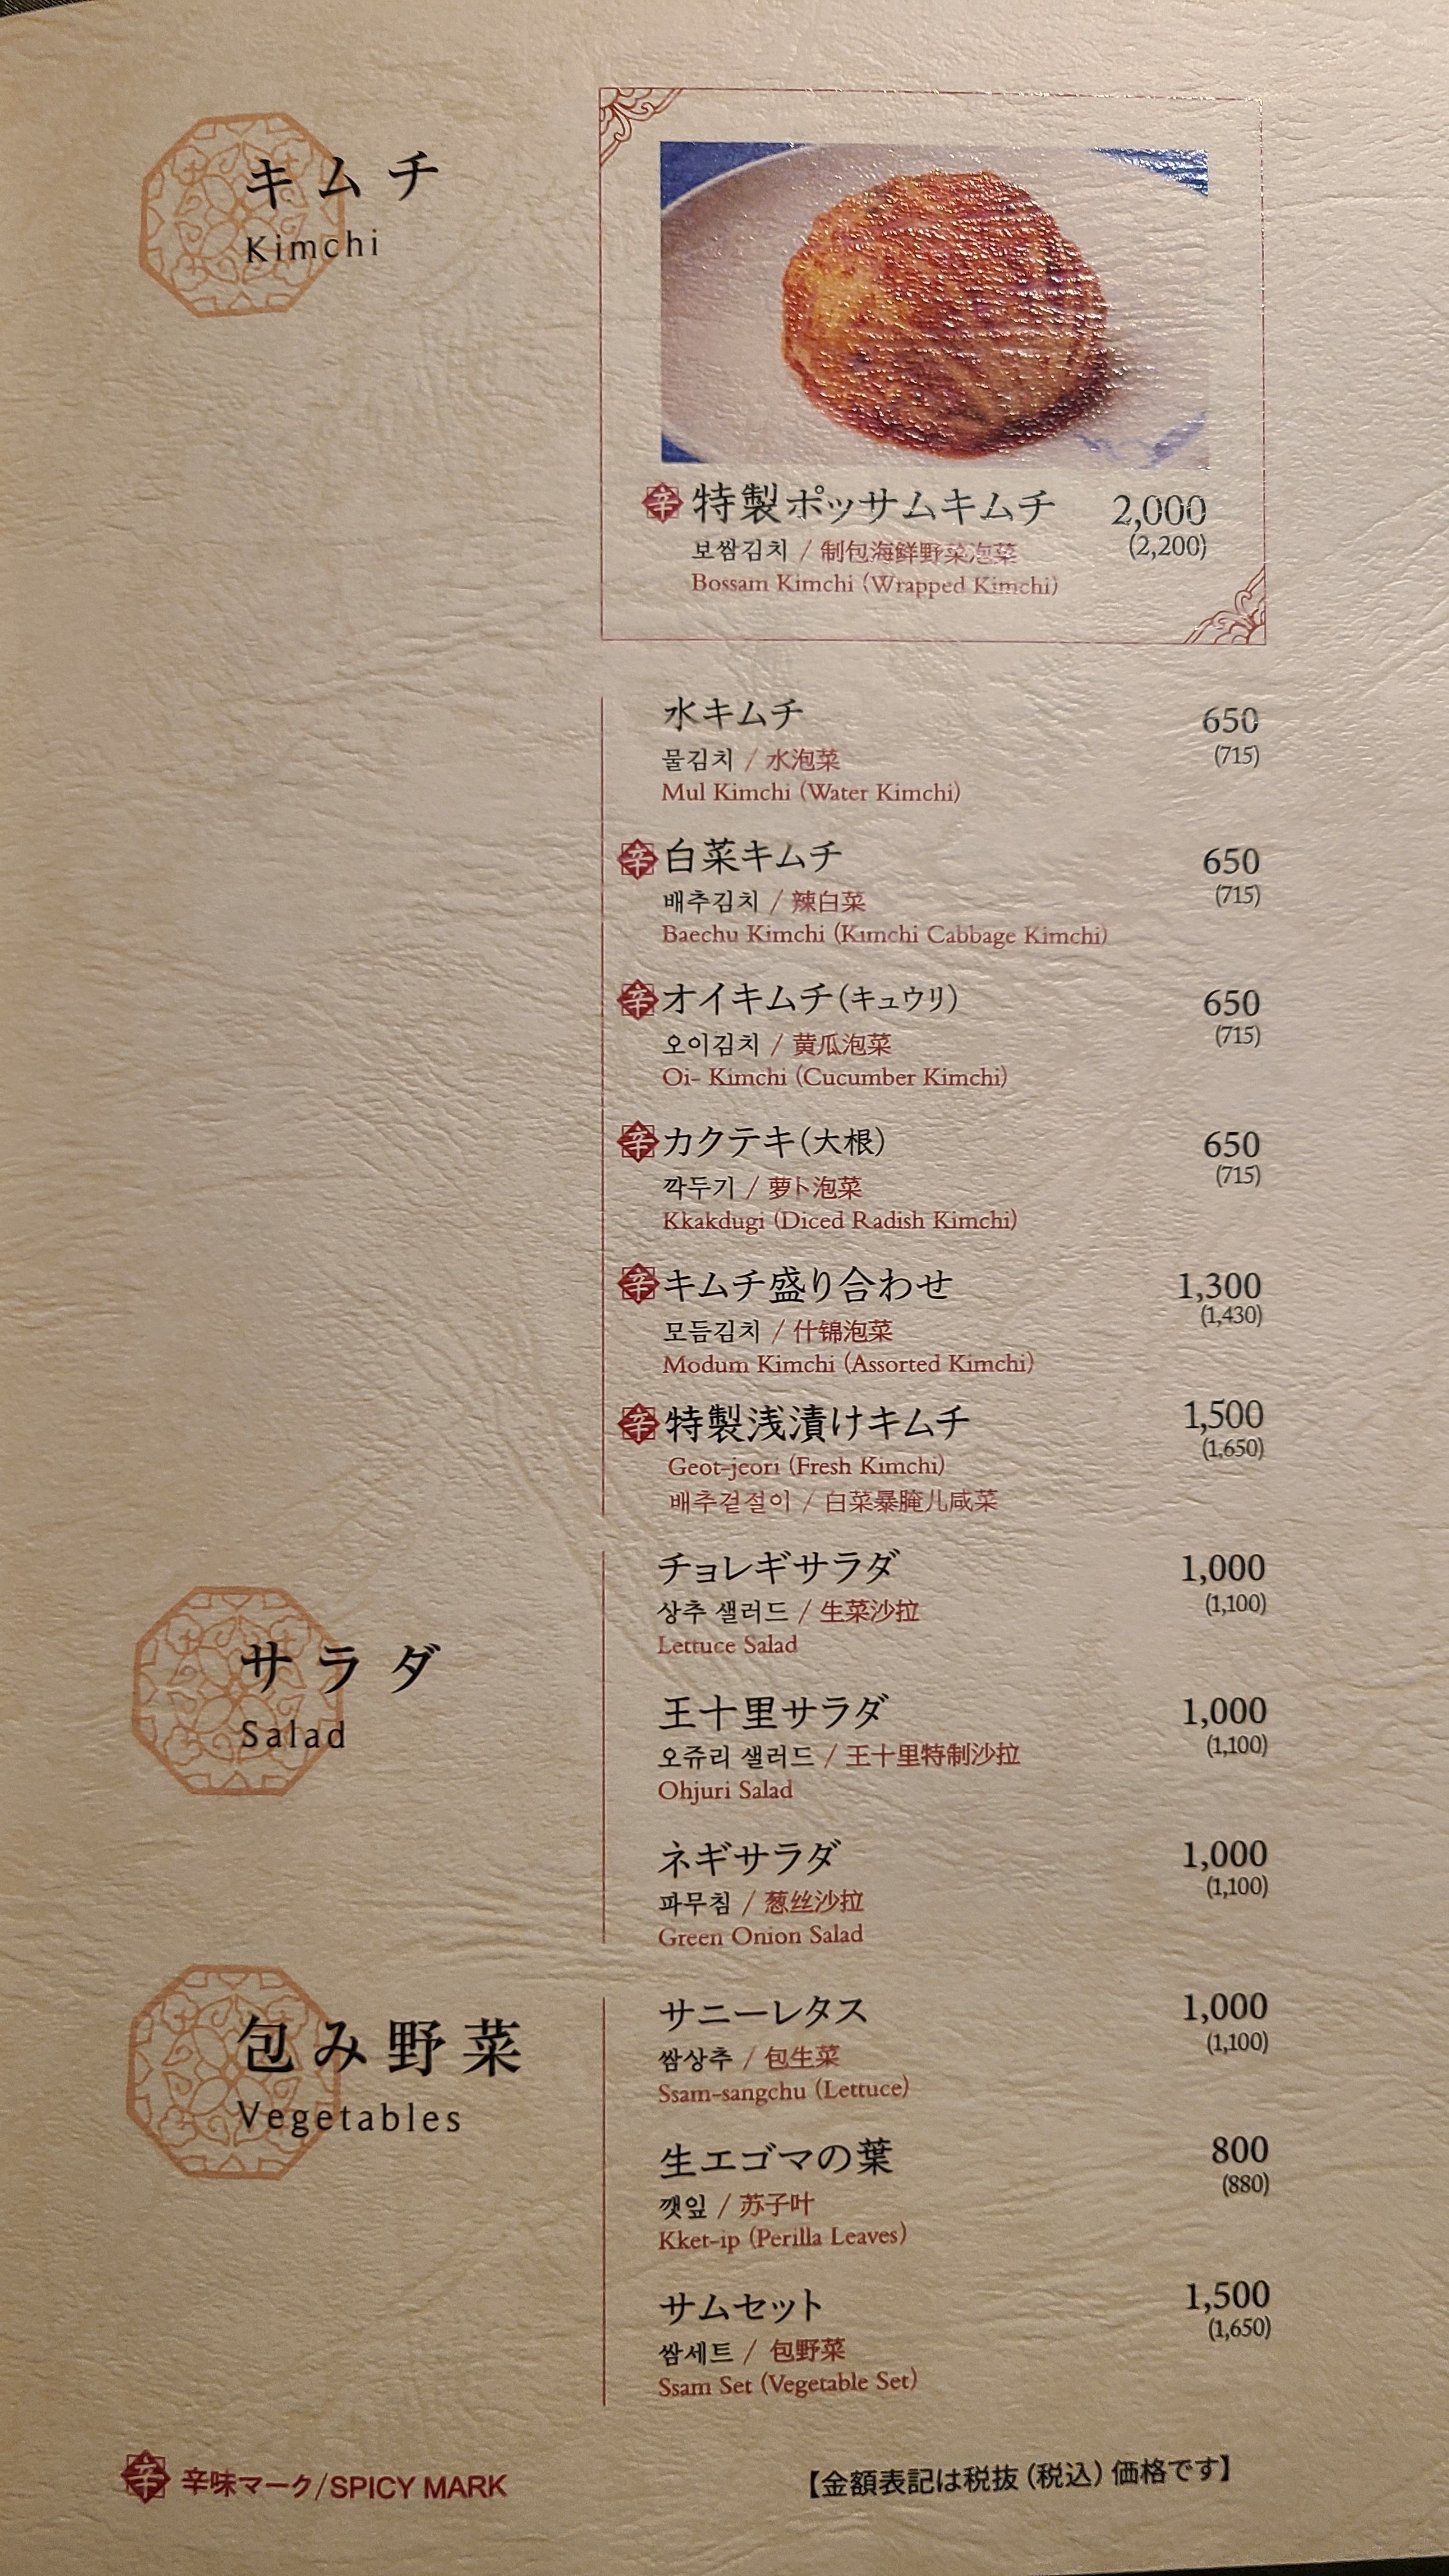 キムチ
Kimchi
辛 特製ポッサムキムチ 2,000
보쌈김치 / 制包海鲜野菜泡菜 (2,200)
Bossam Kimchi (Wrapped Kimchi)
水キムチ 650
물김치 / 水泡菜 (715)
Mul Kimchi (Water Kimchi)
辛 白菜キムチ 650
배추김치 / 辣白菜 (715)
Baechu Kimchi (Kimchi Cabbage Kimchi)
辛 オイキムチ(キュウリ) 650
오이김치 / 黄瓜泡菜 (715)
Oi- Kimchi (Cucumber Kimchi)
辛 カクテキ(大根) 650
깍두기 / 萝卜泡菜 (715)
Kkakdugi (Diced Radish Kimchi)
辛 キムチ盛り合わせ 1,300
모듬김치 / 什锦泡菜 (1,430)
Modum Kimchi (Assorted Kimchi)
辛 特製浅漬けキムチ 1,500
Geot-jeori (Fresh Kimchi) (1,650)
배추겉절이 / 白菜暴腌儿咸菜
サラダ
Salad
チョレギサラダ 1,000
상추 샐러드 / 生菜沙拉 (1,100)
Lettuce Salad
王十里サラダ 1,000
오쥬리 샐러드 / 王十里特制沙拉 (1,100)
Ohjuri Salad
ネギサラダ 1,000
파무침 / 葱丝沙拉 (1,100)
Green Onion Salad
包み野菜
Vegetables
サニーレタス 1,000
쌈상추 / 包生菜 (1,100)
Ssam-sangchu (Lettuce)
生エゴマの葉 800
깻잎 / 苏子叶 (880)
Kket-ip (Perilla Leaves)
サムセット 1,500
쌈세트 / 包野菜 (1,650)
Ssam Set (Vegetable Set)
辛 辛味マーク/SPICY MARK
【金額表記は税抜(税込)価格です】